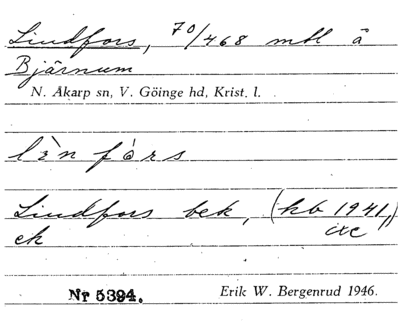 Lindfors, 70/468 mtl å
Bjärnum
N. Åkarp sn, V. Göinge hd, Krist. l.
lìn fórs
Lindfors bek, (kb 1941,)
ek
Nr 5394. Erik W. Bergenrud 1946.